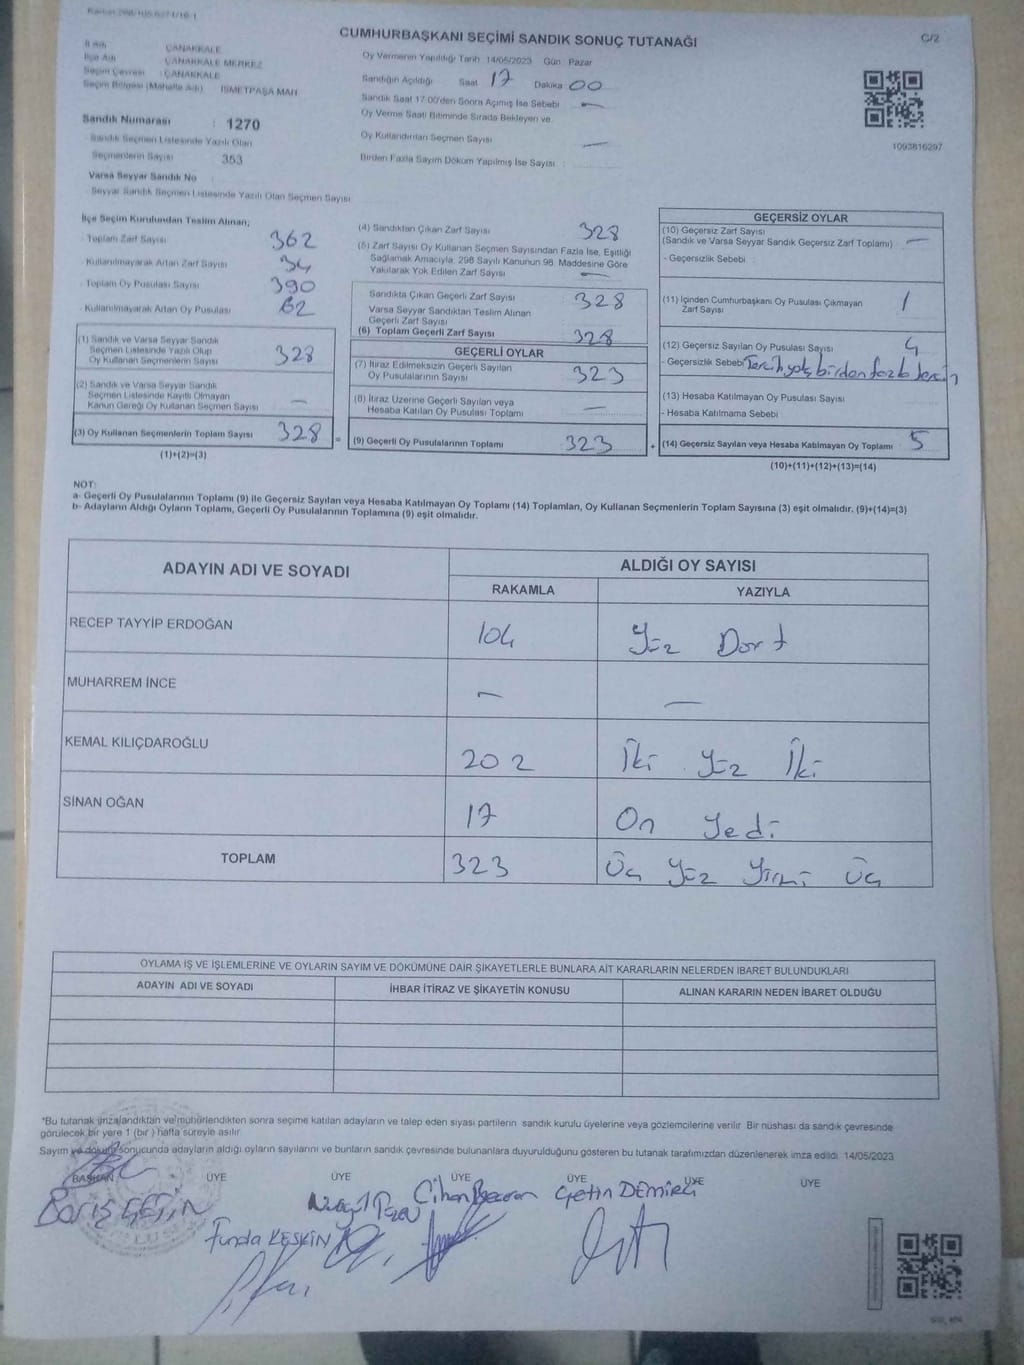 CUMHURBAŞKANI SEÇİMİ SANDIK SONUÇ TUTANAĞI
C/2
İl Adı : ÇANAKKALE
İlçe Adı : ÇANAKKALE MERKEZ
Seçim Çevresi : ÇANAKKALE
Seçim Bölgesi (Mahalle Adı) : İSMETPAŞA MAH
Sandık Numarası : 1270
Sandık Seçmen Listesinde Yazılı Olan
Seçmenlerin Sayısı : 353
Varsa Seyyar Sandık No
Seyyar Sandık Seçmen Listesinde Yazılı Olan Seçmen Sayısı
Oy Vermenin Yapıldığı Tarih 14/05/2023 Gün Pazar
Sandığın Açıldığı Saat 17 Dakika 00
Sandık Saat 17:00'den Sonra Açılmış İse Sebebi —
Oy Verme Saati Bitiminde Sırada Bekleyen ve
Oy Kullandırılan Seçmen Sayısı —
Birden Fazla Sayım Döküm Yapılmış İse Sayısı :
1093816297
İlçe Seçim Kurulundan Teslim Alınan;
- Toplam Zarf Sayısı 362
- Kullanılmayarak Artan Zarf Sayısı 34
- Toplam Oy Pusulası Sayısı 390
- Kullanılmayarak Artan Oy Pusulası 62
(1) Sandık ve Varsa Seyyar Sandık
Seçmen Listesinde Yazılı Olup
Oy Kullanan Seçmenlerin Sayısı 328
(2) Sandık ve Varsa Seyyar Sandık
Seçmen Listesinde Kayıtlı Olmayan
Kanun Gereği Oy Kullanan Seçmen Sayısı —
(3) Oy Kullanan Seçmenlerin Toplam Sayısı 328 =
(1)+(2)=(3)
(4) Sandıktan Çıkan Zarf Sayısı 328
(5) Zarf Sayısı Oy Kullanan Seçmen Sayısından Fazla İse, Eşitliği
Sağlamak Amacıyla, 298 Sayılı Kanunun 98. Maddesine Göre
Yakılarak Yok Edilen Zarf Sayısı —
Sandıkta Çıkan Geçerli Zarf Sayısı 328
Varsa Seyyar Sandıktan Teslim Alınan
Geçerli Zarf Sayısı
(6) Toplam Geçerli Zarf Sayısı 328
GEÇERLİ OYLAR
(7) İtiraz Edilmeksizin Geçerli Sayılan
Oy Pusulalarının Sayısı 323
(8) İtiraz Üzerine Geçerli Sayılan veya
Hesaba Katılan Oy Pusulası Toplamı —
(9) Geçerli Oy Pusulalarının Toplamı 323 +
GEÇERSİZ OYLAR
(10) Geçersiz Zarf Sayısı
(Sandık ve Varsa Seyyar Sandık Geçersiz Zarf Toplamı) —
- Geçersizlik Sebebi
(11) İçinden Cumhurbaşkanı Oy Pusulası Çıkmayan
Zarf Sayısı 1
(12) Geçersiz Sayılan Oy Pusulası Sayısı 4
- Geçersizlik Sebebi Tercih yok, birden fazla tercih
(13) Hesaba Katılmayan Oy Pusulası Sayısı
- Hesaba Katılmama Sebebi
(14) Geçersiz Sayılan veya Hesaba Katılmayan Oy Toplamı 5
(10)+(11)+(12)+(13)=(14)
NOT:
a- Geçerli Oy Pusulalarının Toplamı (9) ile Geçersiz Sayılan veya Hesaba Katılmayan Oy Toplamı (14) Toplamları, Oy Kullanan Seçmenlerin Toplam Sayısına (3) eşit olmalıdır. (9)+(14)=(3)
b- Adayların Aldığı Oyların Toplamı, Geçerli Oy Pusulalarının Toplamına (9) eşit olmalıdır.
ADAYIN ADI VE SOYADI ALDIĞI OY SAYISI
RAKAMLA YAZIYLA
RECEP TAYYİP ERDOĞAN 104 Yüz Dört
MUHARREM İNCE — —
KEMAL KILIÇDAROĞLU 202 İki Yüz İki
SİNAN OĞAN 17 On Yedi
TOPLAM 323 Üç Yüz Yirmi Üç
OYLAMA İŞ VE İŞLEMLERİNE VE OYLARIN SAYIM VE DÖKÜMÜNE DAİR ŞİKAYETLERLE BUNLARA AİT KARARLARIN NELERDEN İBARET BULUNDUKLARI
ADAYIN ADI VE SOYADI İHBAR İTİRAZ VE ŞİKAYETİN KONUSU ALINAN KARARIN NEDEN İBARET OLDUĞU
*Bu tutanak imzalandıktan ve mühürlendikten sonra seçime katılan adayların ve talep eden siyasi partilerin sandık kurulu üyelerine veya gözlemcilerine verilir. Bir nüshası da sandık çevresinde
görülecek bir yere 1 (bir ) hafta süreyle asılır.
Sayım ve döküm sonucunda adayların aldığı oyların sayılarını ve bunların sandık çevresinde bulunanlara duyurulduğunu gösteren bu tutanak tarafımızdan düzenlenerek imza edildi. 14/05/2023
BAŞKAN ÜYE ÜYE ÜYE ÜYE ÜYE ÜYE
Barış ÇETİN
Funda KESKİN
Cihan
Çetin DEMİREL